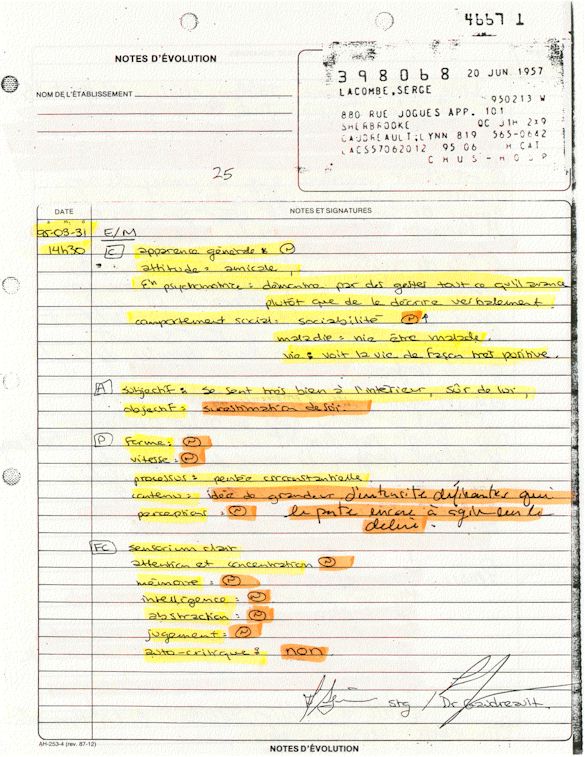 4667 1
NOTES D'ÉVOLUTION
NOM DE L'ÉTABLISSEMENT
398068 20 JUN 1957
LACOMBE, SERGE
950213 W
880 RUE JOGUES APP. 101
SHERBROOKE QC J1H 2X9
GAUDREAULT,LYNN 819 565-0642
LACS57062012 95 06 H CAT
CHUS-HOSP
25
DATE NOTES ET SIGNATURES
95-03-31 E/M
14h30 C apparence générale : N
attitude : amicale,
Fn psychomotrice : démontre par des gestes tout ce qu'il avance
plutôt que de le décrire verbalement.
comportement social : sociabilité N ↑
maladie : nie être malade.
vie : voit la vie de façon très positive.
A subjectif : se sent très bien à l'intérieur, sûr de lui,
objectif : surestimation de soi.
P Forme : N
vitesse : N
processus : pensée circonstantielle.
contenu : idée de grandeur d'intensité délirantes qui
perceptions : N le porte encore à agir sur le
délire.
FC sensorium clair
attention et concentration N
mémoire : N
intelligence : N
abstraction : N
jugement : N
auto-critique : non
stg / Dr Gaudreault.
AH-253-4 (rev. 87-12)
NOTES D'ÉVOLUTION